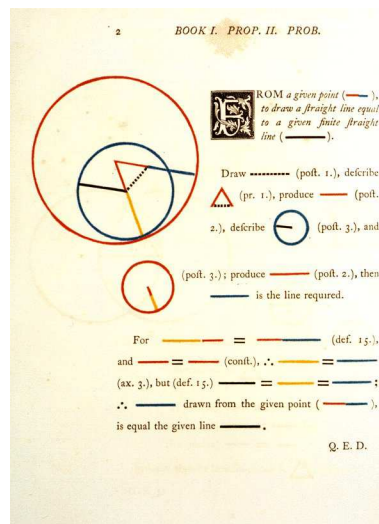 2 BOOK I. PROP. II. PROB.
FROM a given point ( ),
to draw a ſtraight line equal
to a given finite ſtraight
line ( ).
Draw (poſt. 1.), deſcribe
(pr. 1.), produce (poſt.
2.), deſcribe (poſt. 3.), and
(poſt. 3.); produce (poſt. 2.), then
is the line required.
For = (def. 15.),
and = (conſt.), ∴ =
(ax. 3.), but (def. 15.) = = ;
∴ drawn from the given point ( ),
is equal the given line .
Q. E. D.